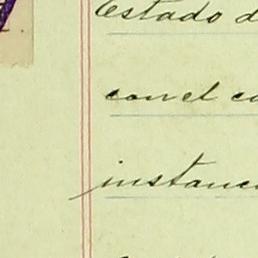 Estado d
con el co
instanci